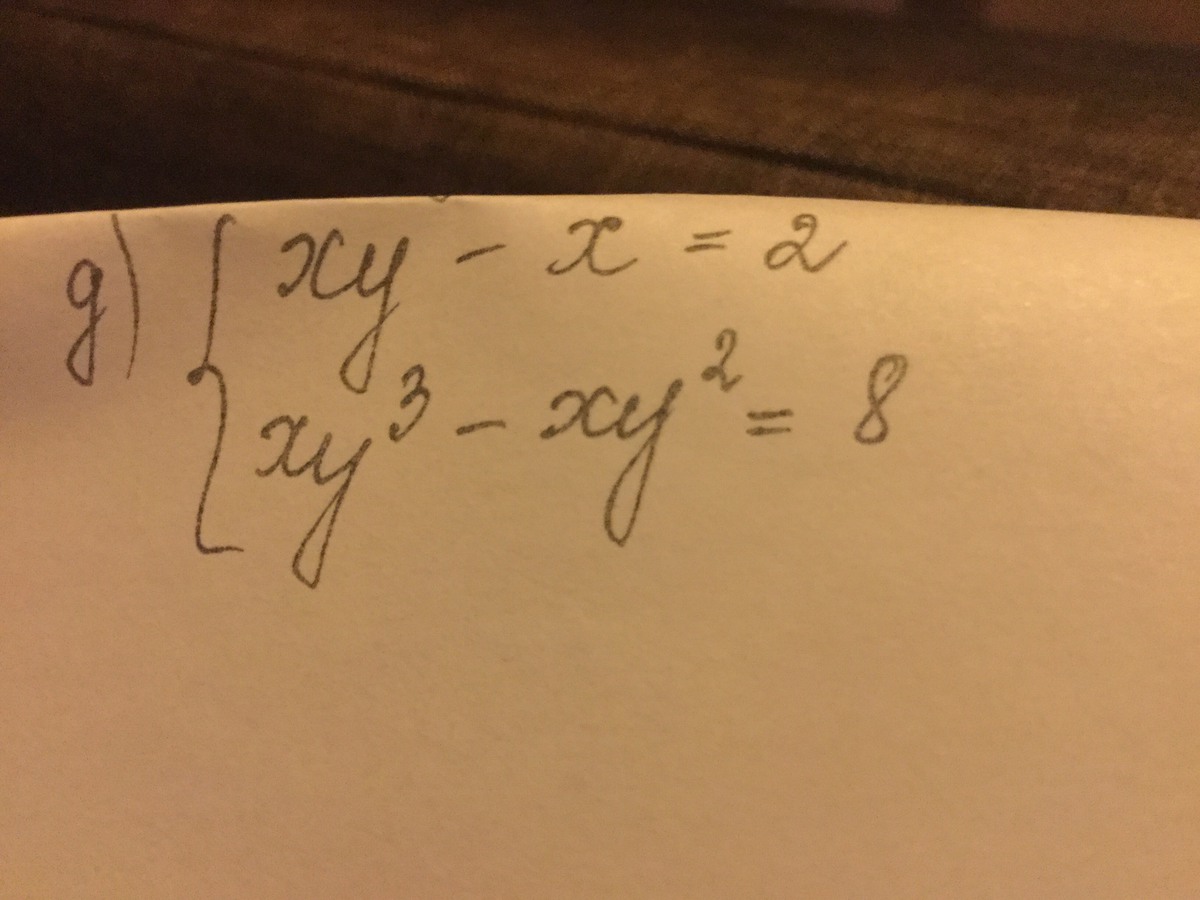 g) { xy - x = 2
xy³ - xy² = 8